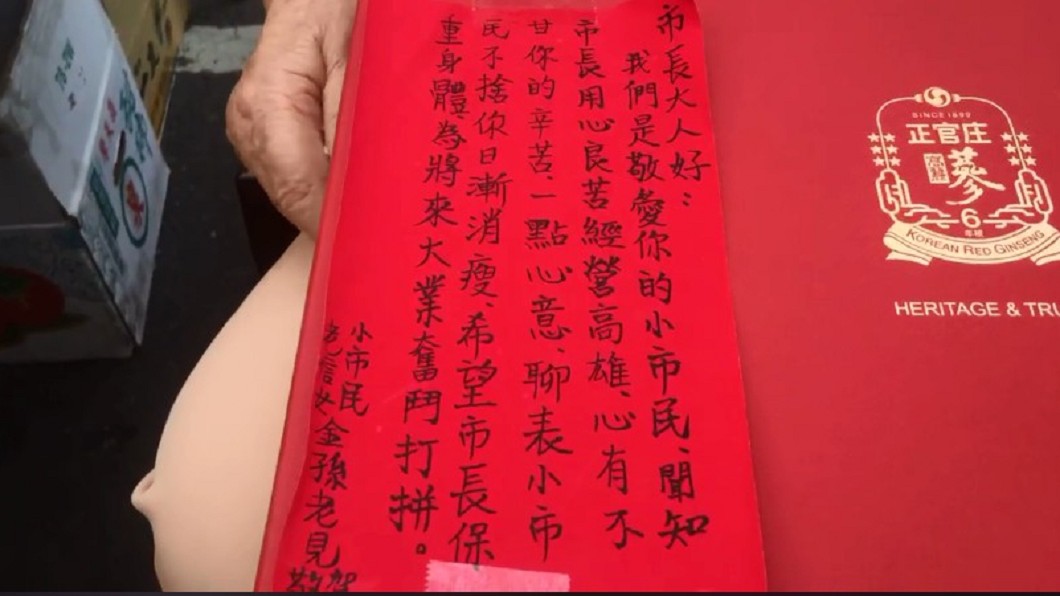 市長大人好：
我們是敬愛你的小市民、聞知
市長用心良苦經營高雄、心有不
甘你的辛苦、一點心意、聊表小市
民不捨你日漸消瘦、希望市長保
重身體、為將來大業奮鬥打拼。
小市民
金孫老見
敬賀
SINCE 1899
正官庄
蔘
6
KOREAN RED GINSENG
HERITAGE & TRU